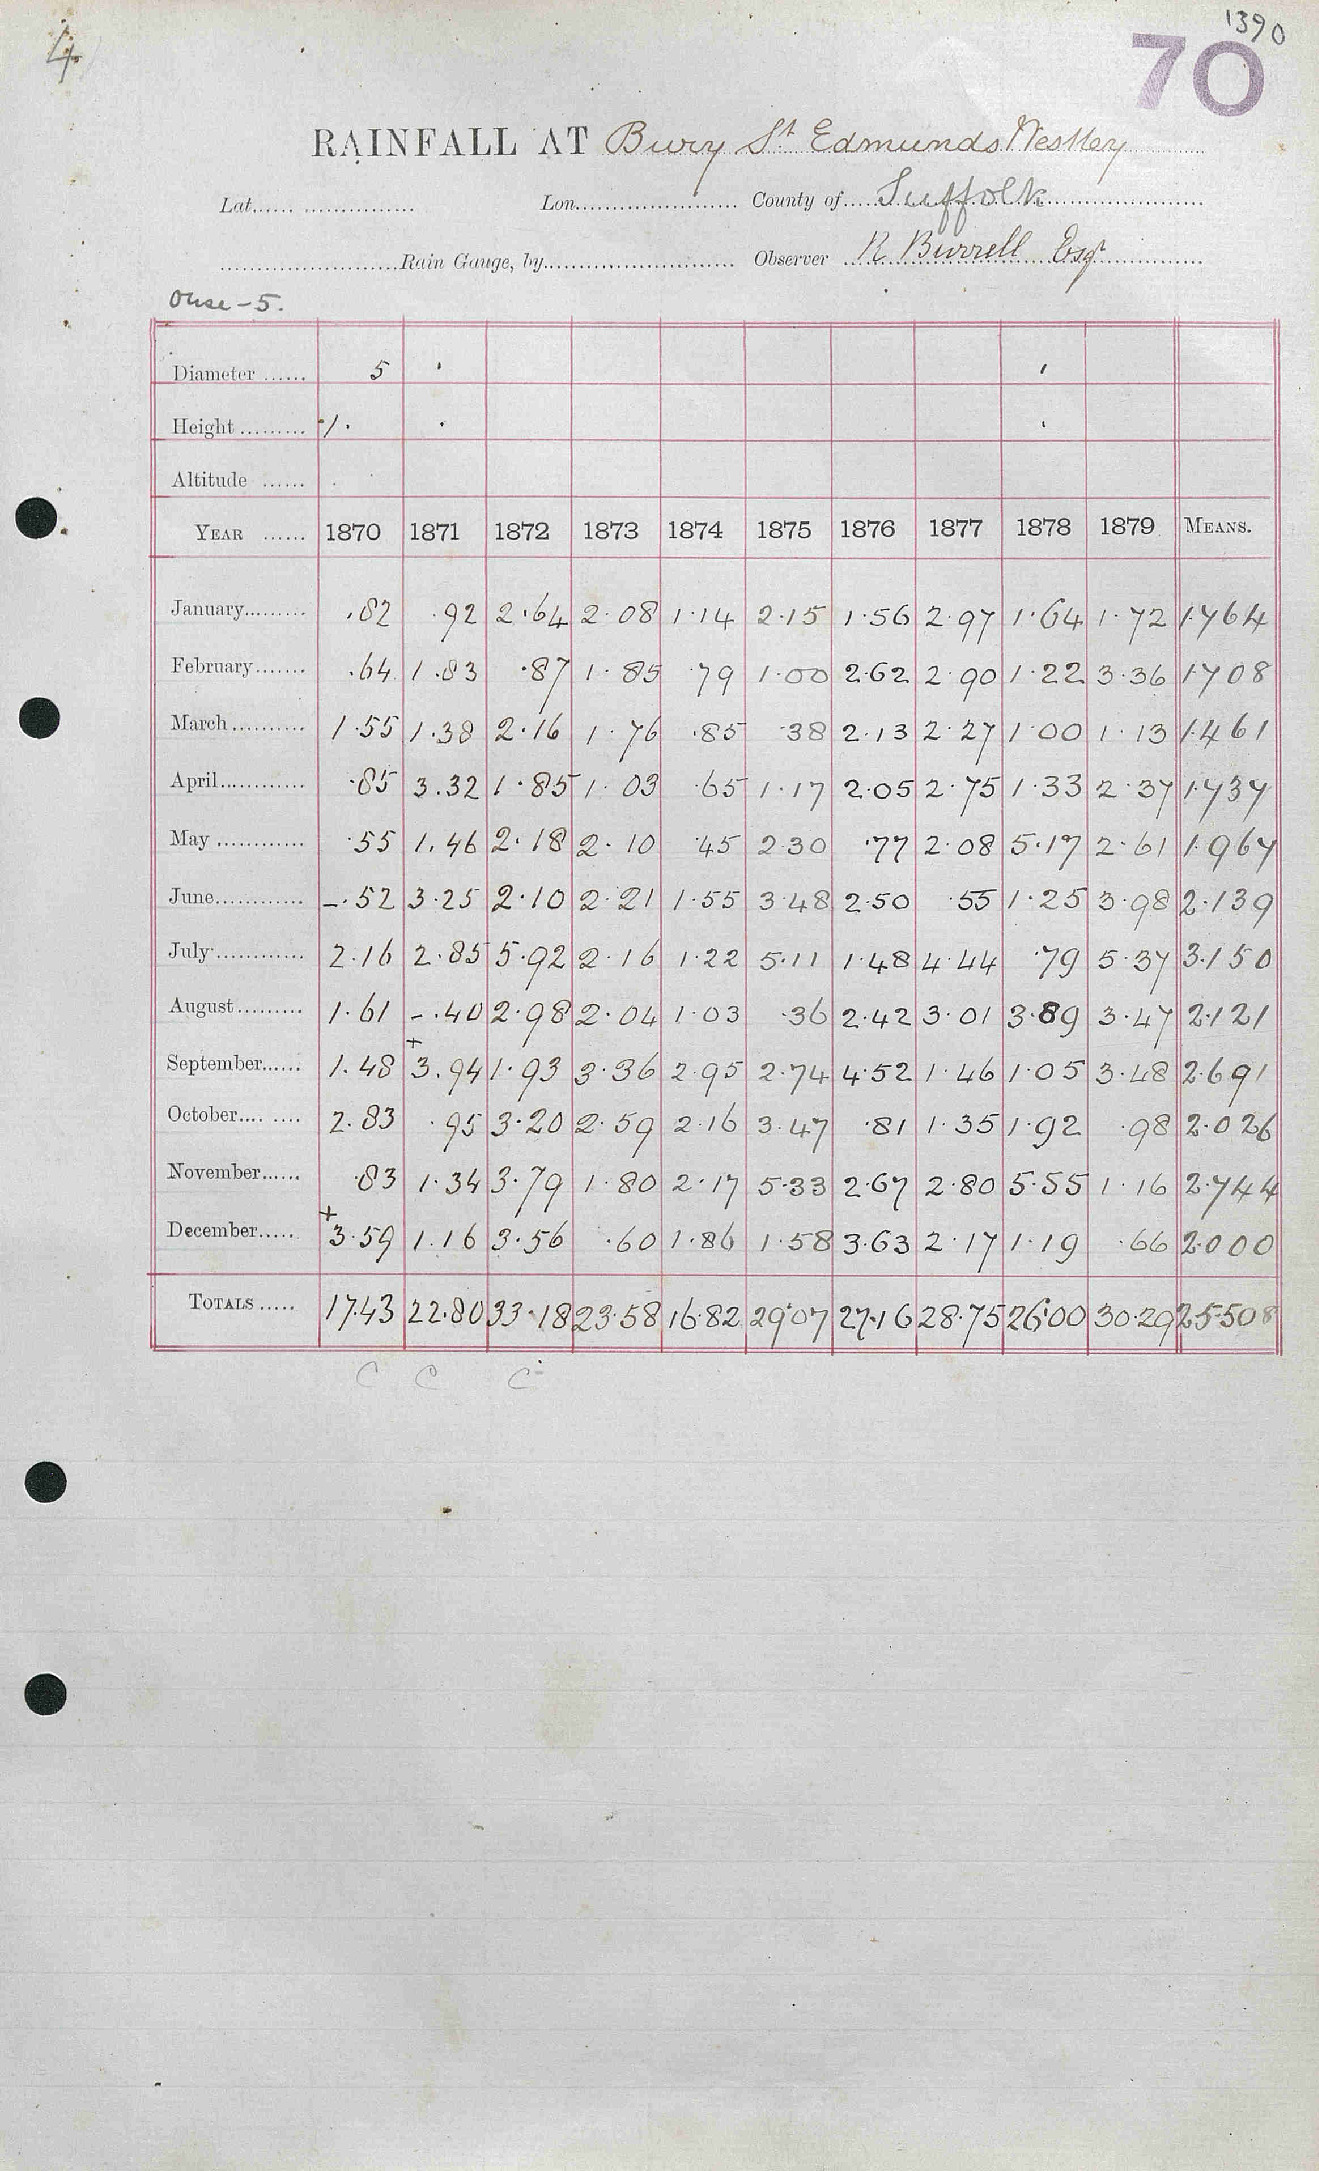 1390
4
70
RAINFALL AT Bury St Edmunds Westley
Lat. Lon. County of Suffolk
Rain Gauge, by Observer R Burrell Esqr
Ouse - 5.
Diameter 5 ' '
Height 1.
Altitude
YEAR 1870 1871 1872 1873 1874 1875 1876 1877 1878 1879 MEANS.
January .82 .92 2.64 2.08 1.14 2.15 1.56 2.97 1.64 1.72 1.764
February .64 1.83 .87 1.85 .79 1.00 2.62 2.90 1.22 3.36 1.708
March 1.55 1.38 2.16 1.76 .85 .38 2.13 2.27 1.00 1.13 1.461
April .85 3.32 1.85 1.03 .65 1.17 2.05 2.75 1.33 2.37 1.737
May .55 1.46 2.18 2.10 .45 2.30 .77 2.08 5.17 2.61 1.967
June -.52 3.25 2.10 2.21 1.55 3.48 2.50 .55 1.25 3.98 2.139
July 2.16 2.85 5.92 2.16 1.22 5.11 1.48 4.44 .79 5.37 3.150
August 1.61 -.40 2.98 2.04 1.03 .36 2.42 3.01 3.89 3.47 2.121
September 1.48 +3.94 1.93 3.36 2.95 2.74 4.52 1.46 1.05 3.48 2.691
October 2.83 .95 3.20 2.59 2.16 3.47 .81 1.35 1.92 .98 2.026
November .83 1.34 3.79 1.80 2.17 5.33 2.67 2.80 5.55 1.16 2.744
December +3.59 1.16 3.56 .60 1.86 1.58 3.63 2.17 1.19 .66 2.000
TOTALS 17.43 22.80 33.18 23.58 16.82 29.07 27.16 28.75 26.00 30.29 25.508
C C C